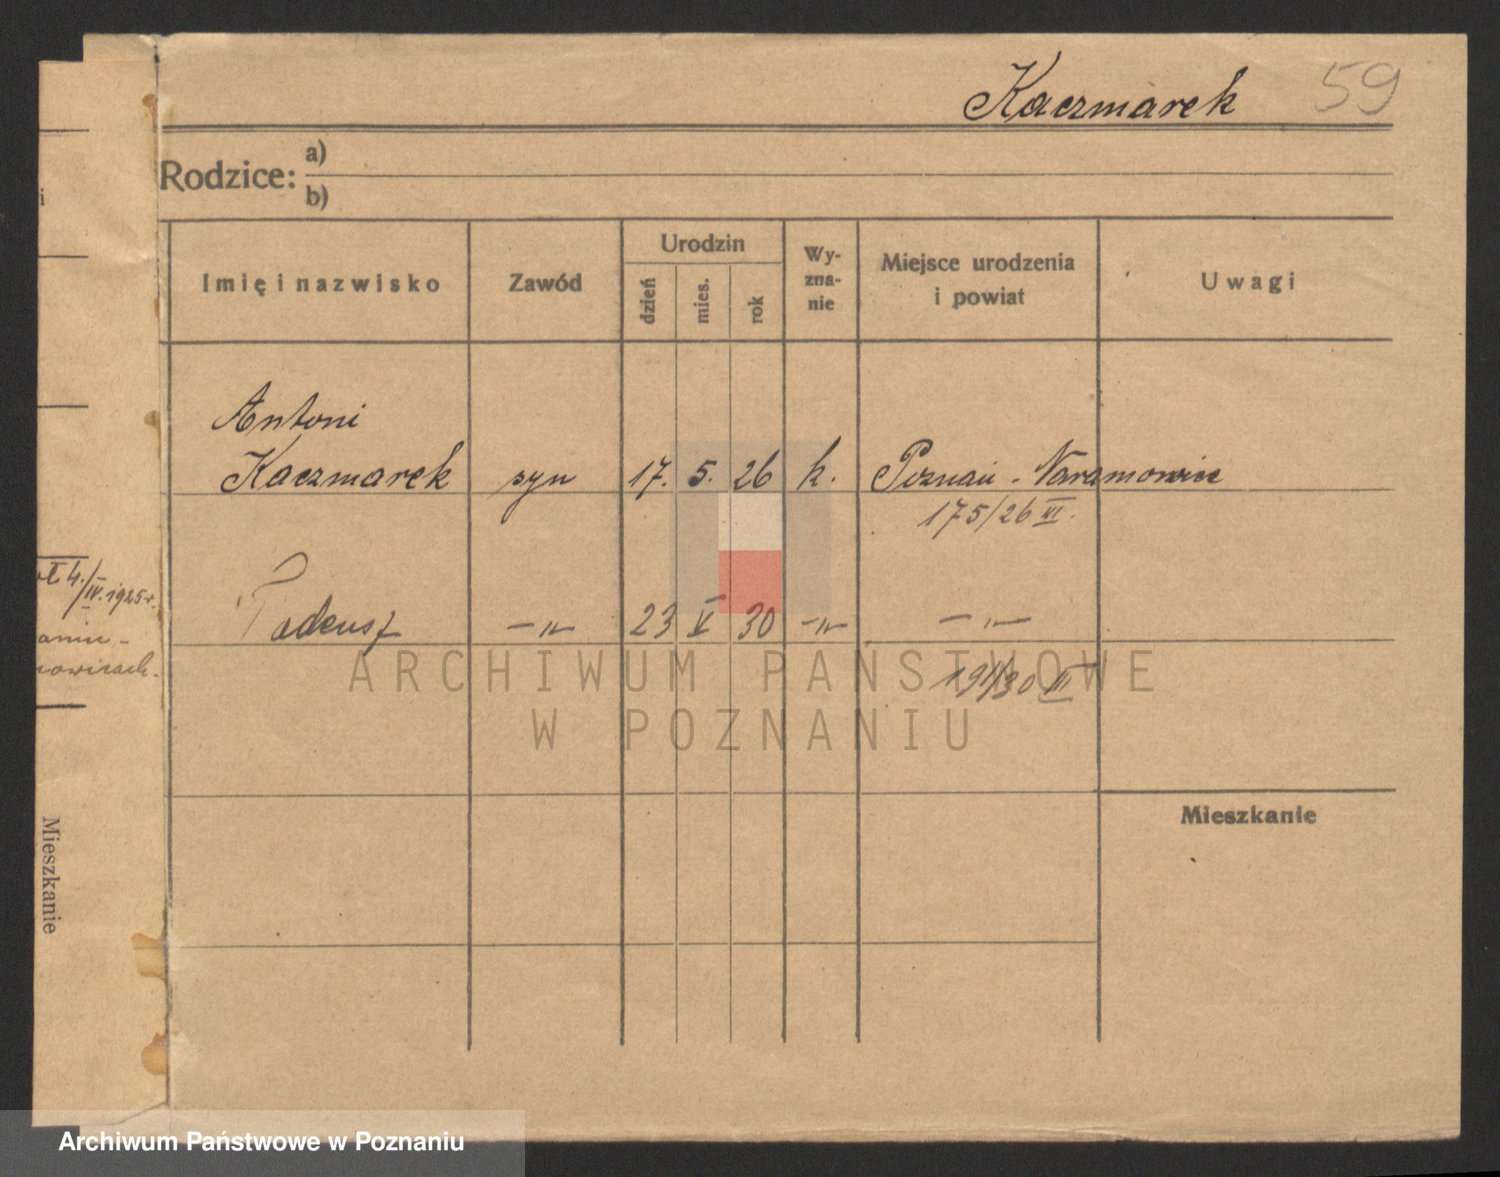 Kaczmarek 59
Rodzice: a)
b)
Imię i nazwisko
Zawód
Urodzin
dzień
mies.
rok
Wy-
zna-
nie
Miejsce urodzenia
i powiat
Uwagi
Antoni
Kaczmarek syn 17. 5. 26 k. Poznań - Naramowice
175/26 III.
Tadeusz -"- 23 V 30 -"- -"-
/30 III
Mieszkanie
4./IV. 1925 r.
Mieszkanie
ARCHIWUM PAŃSTWOWE
W POZNANIU
Archiwum Państwowe w Poznaniu